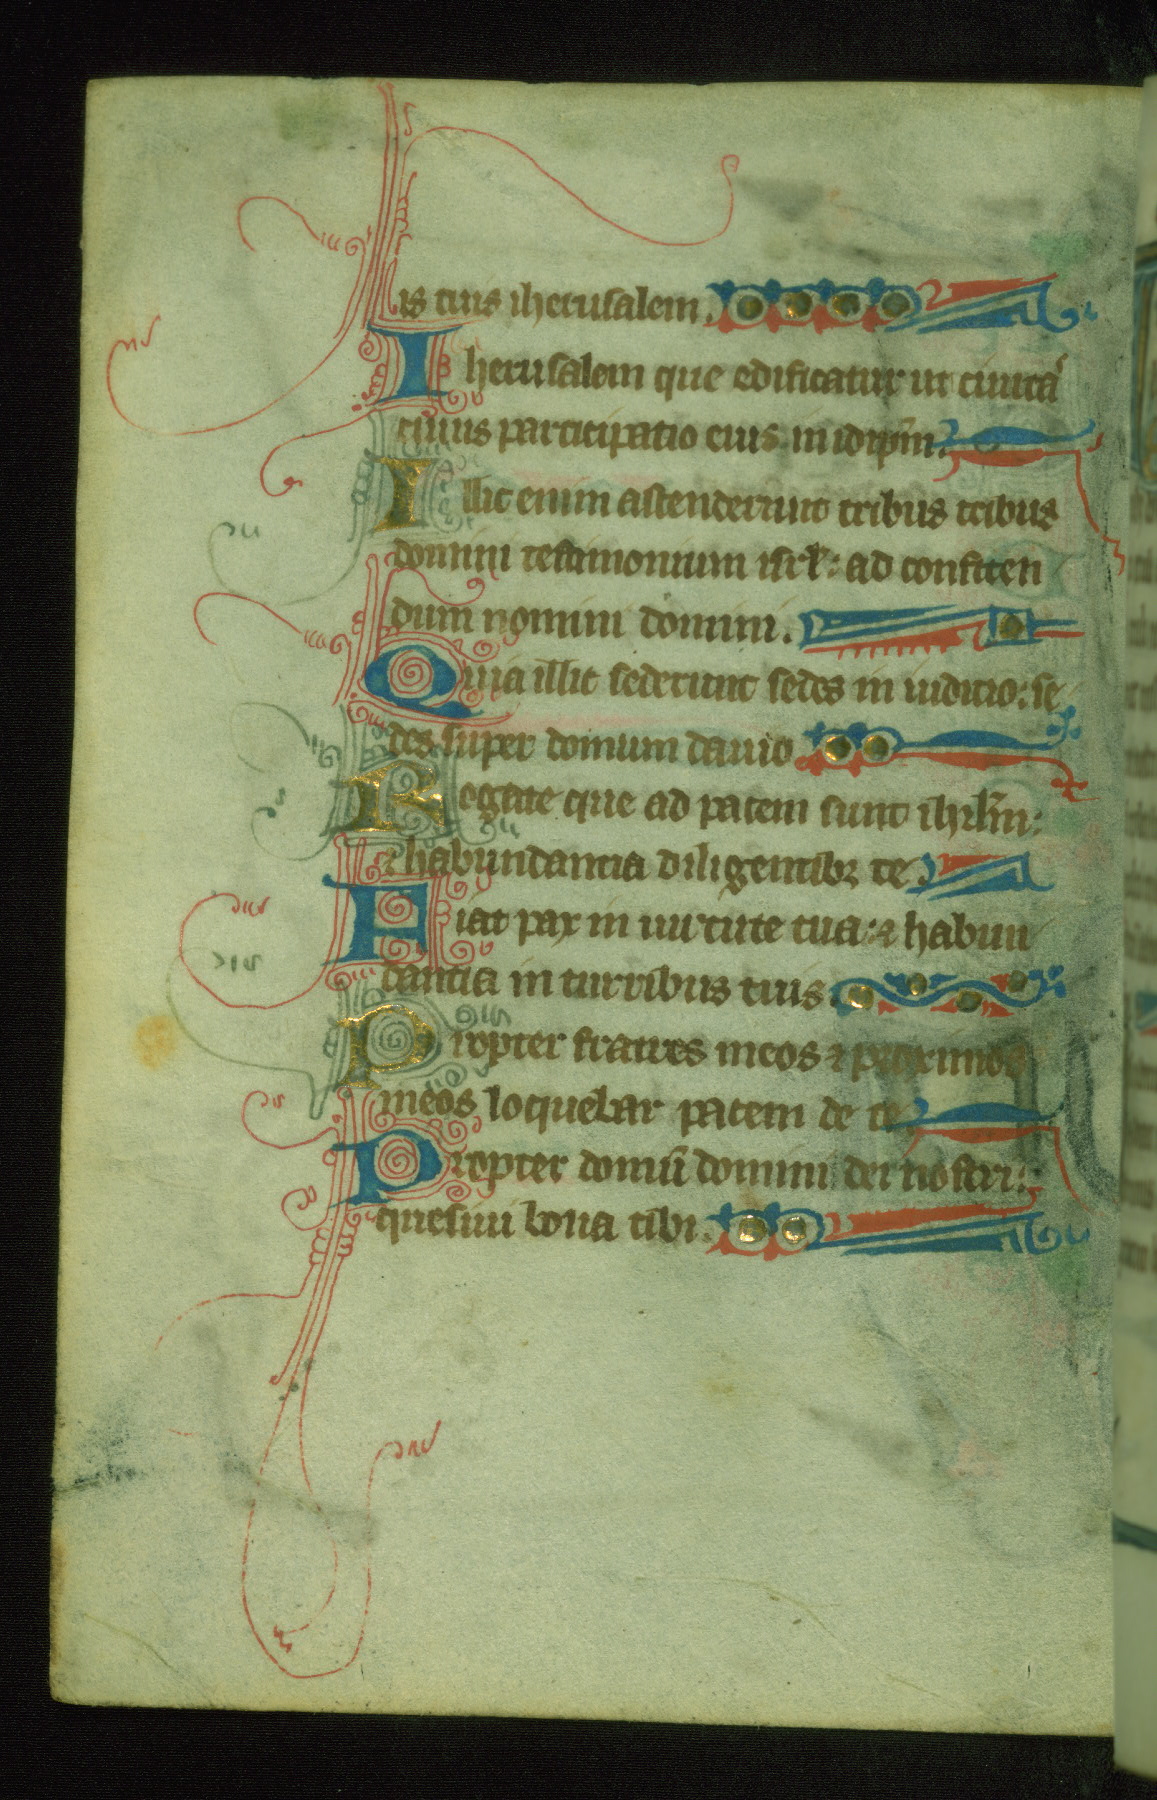 is tuis iherusalem.
Iherusalem que edificatur ut ciuita
cuius participatio eius in idip̄m.
Illic enim ascenderunt tribus tribus
domini testimonium isrl̄: ad confiten
dum nomini domini.
Quia illic sederunt sedes in iudicio: se
des super domum dauid
Rogate que ad pacem sunt ihrl̄m:
⁊ habundancia diligentibꝫ te.
Fiat pax in uirtute tua: ⁊ habun
dancia in turribus tuis.
Propter fratres meos ⁊ proximos
meos loquebar pacem de te
Propter domū domini dei nostri:
quesiui bona tibi.